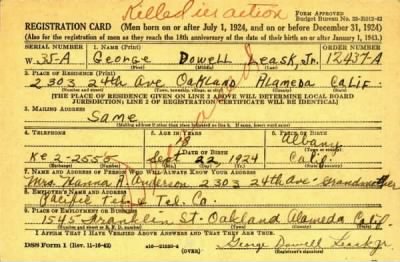 Killed in action
FORM APPROVED
Budget Bureau No. 33-R012-43
REGISTRATION CARD (Men born on or after July 1, 1924, and on or before December 31, 1924)
(Also for the registration of men as they reach the 18th anniversary of the date of their birth on or after January 1, 1943.)
SERIAL NUMBER 1. NAME (Print) ORDER NUMBER
W 35-A George Dowell Leask, Jr. 12437-A
2. PLACE OF RESIDENCE (Print)
2303 24th Ave Oakland Alameda Calif
(THE PLACE OF RESIDENCE GIVEN ON LINE 2 ABOVE WILL DETERMINE LOCAL BOARD
JURISDICTION; LINE 2 OF REGISTRATION CERTIFICATE WILL BE IDENTICAL)
3. MAILING ADDRESS
Same
4. TELEPHONE 5. AGE IN YEARS 6. PLACE OF BIRTH
18 Albany
DATE OF BIRTH
Ke 2-2555 Sept 22 1924 Calif.
7. NAME AND ADDRESS OF PERSON WHO WILL ALWAYS KNOW YOUR ADDRESS
Mrs. Hanna A. Anderson 2303 24th Ave. Grandmother
Pacific Tel & Tel. Co.
9. PLACE OF EMPLOYMENT OR BUSINESS
1545 Franklin St. Oakland Alameda Calif.
I AFFIRM THAT I HAVE VERIFIED ABOVE ANSWERS AND THAT THEY ARE TRUE.
DSS Form 1 (Rev. 11-16-42) (OVER) George Dowell Leask Jr.